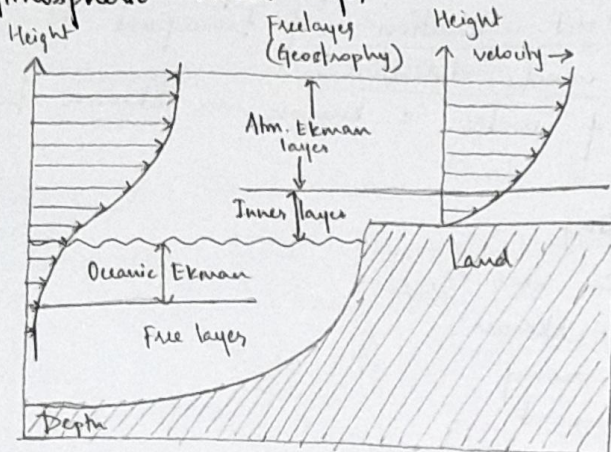 Height
Freelayer
(Geostrophy)
Height
velocity →
Atm. Ekman
layer
Inner layer
Oceanic Ekman
Free layer
Land
Depth